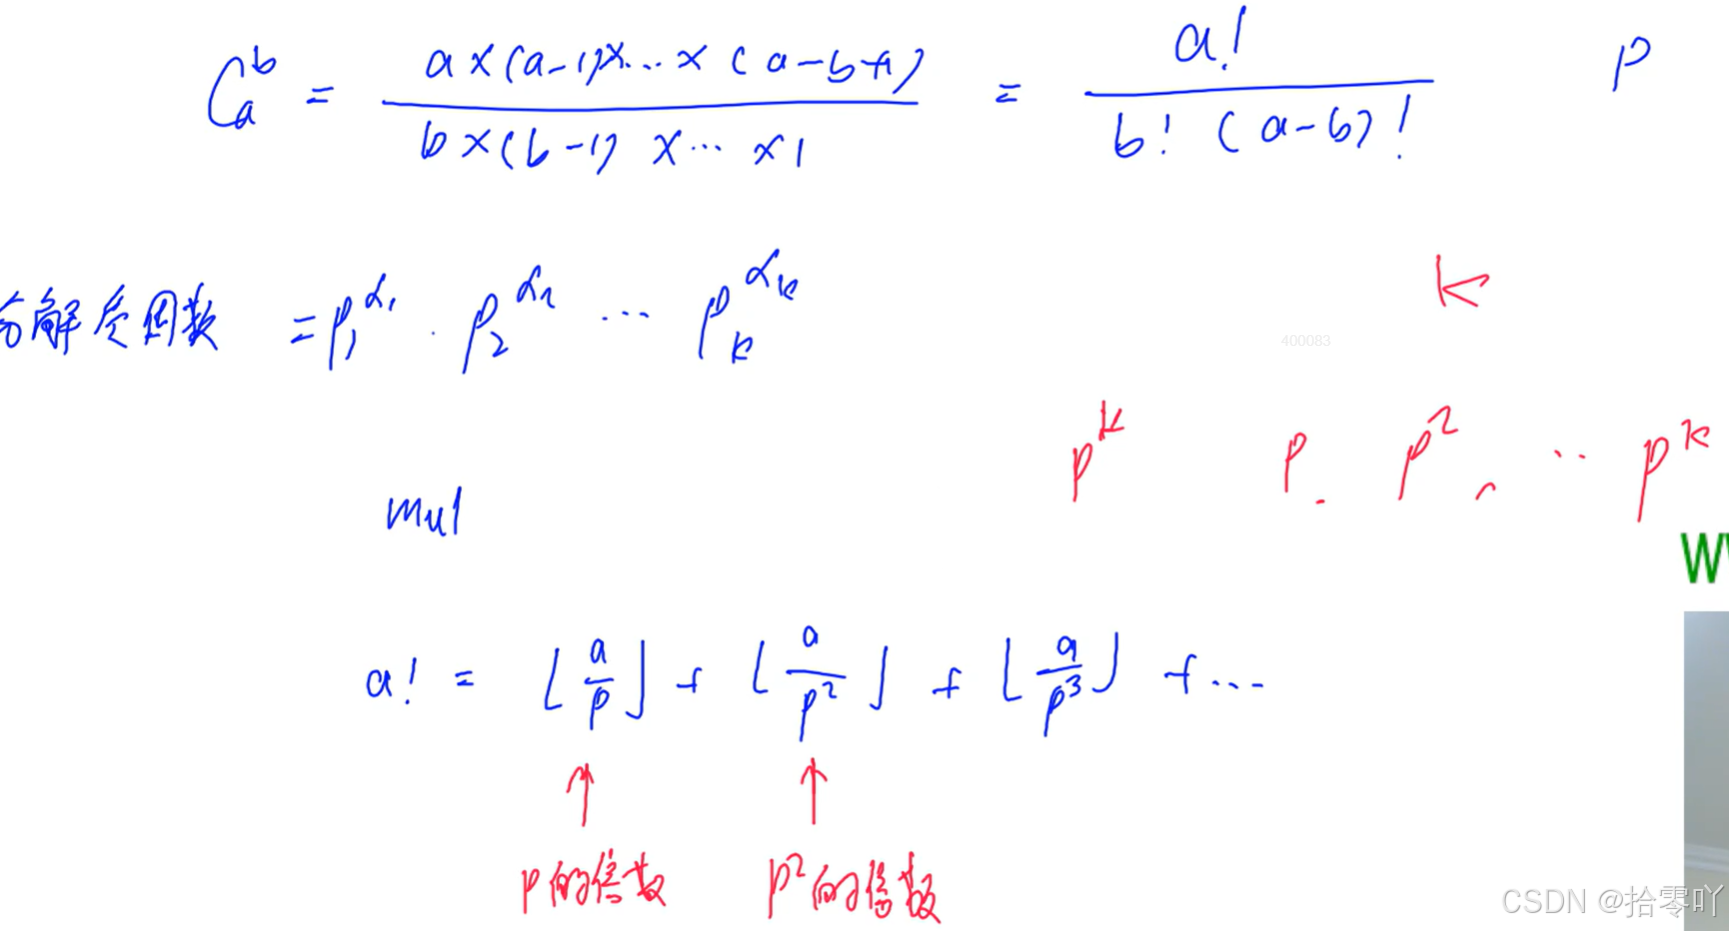 C_a^b = \frac{a×(a-1)×...×(a-b+1)}{b×(b-1)×...×1} = \frac{a!}{b!(a-b)!} p
分解质因数 = p_1^{α_1} · p_2^{α_2} ... p_k^{α_k} k
400083
p^k p. p^2, .. p^k
mul
W
a! = ⌊\frac{a}{p}⌋ + ⌊\frac{a}{p^2}⌋ + ⌊\frac{a}{p^3}⌋ + ...
↑ ↑
p的倍数 p^2的倍数
CSDN @拾零吖